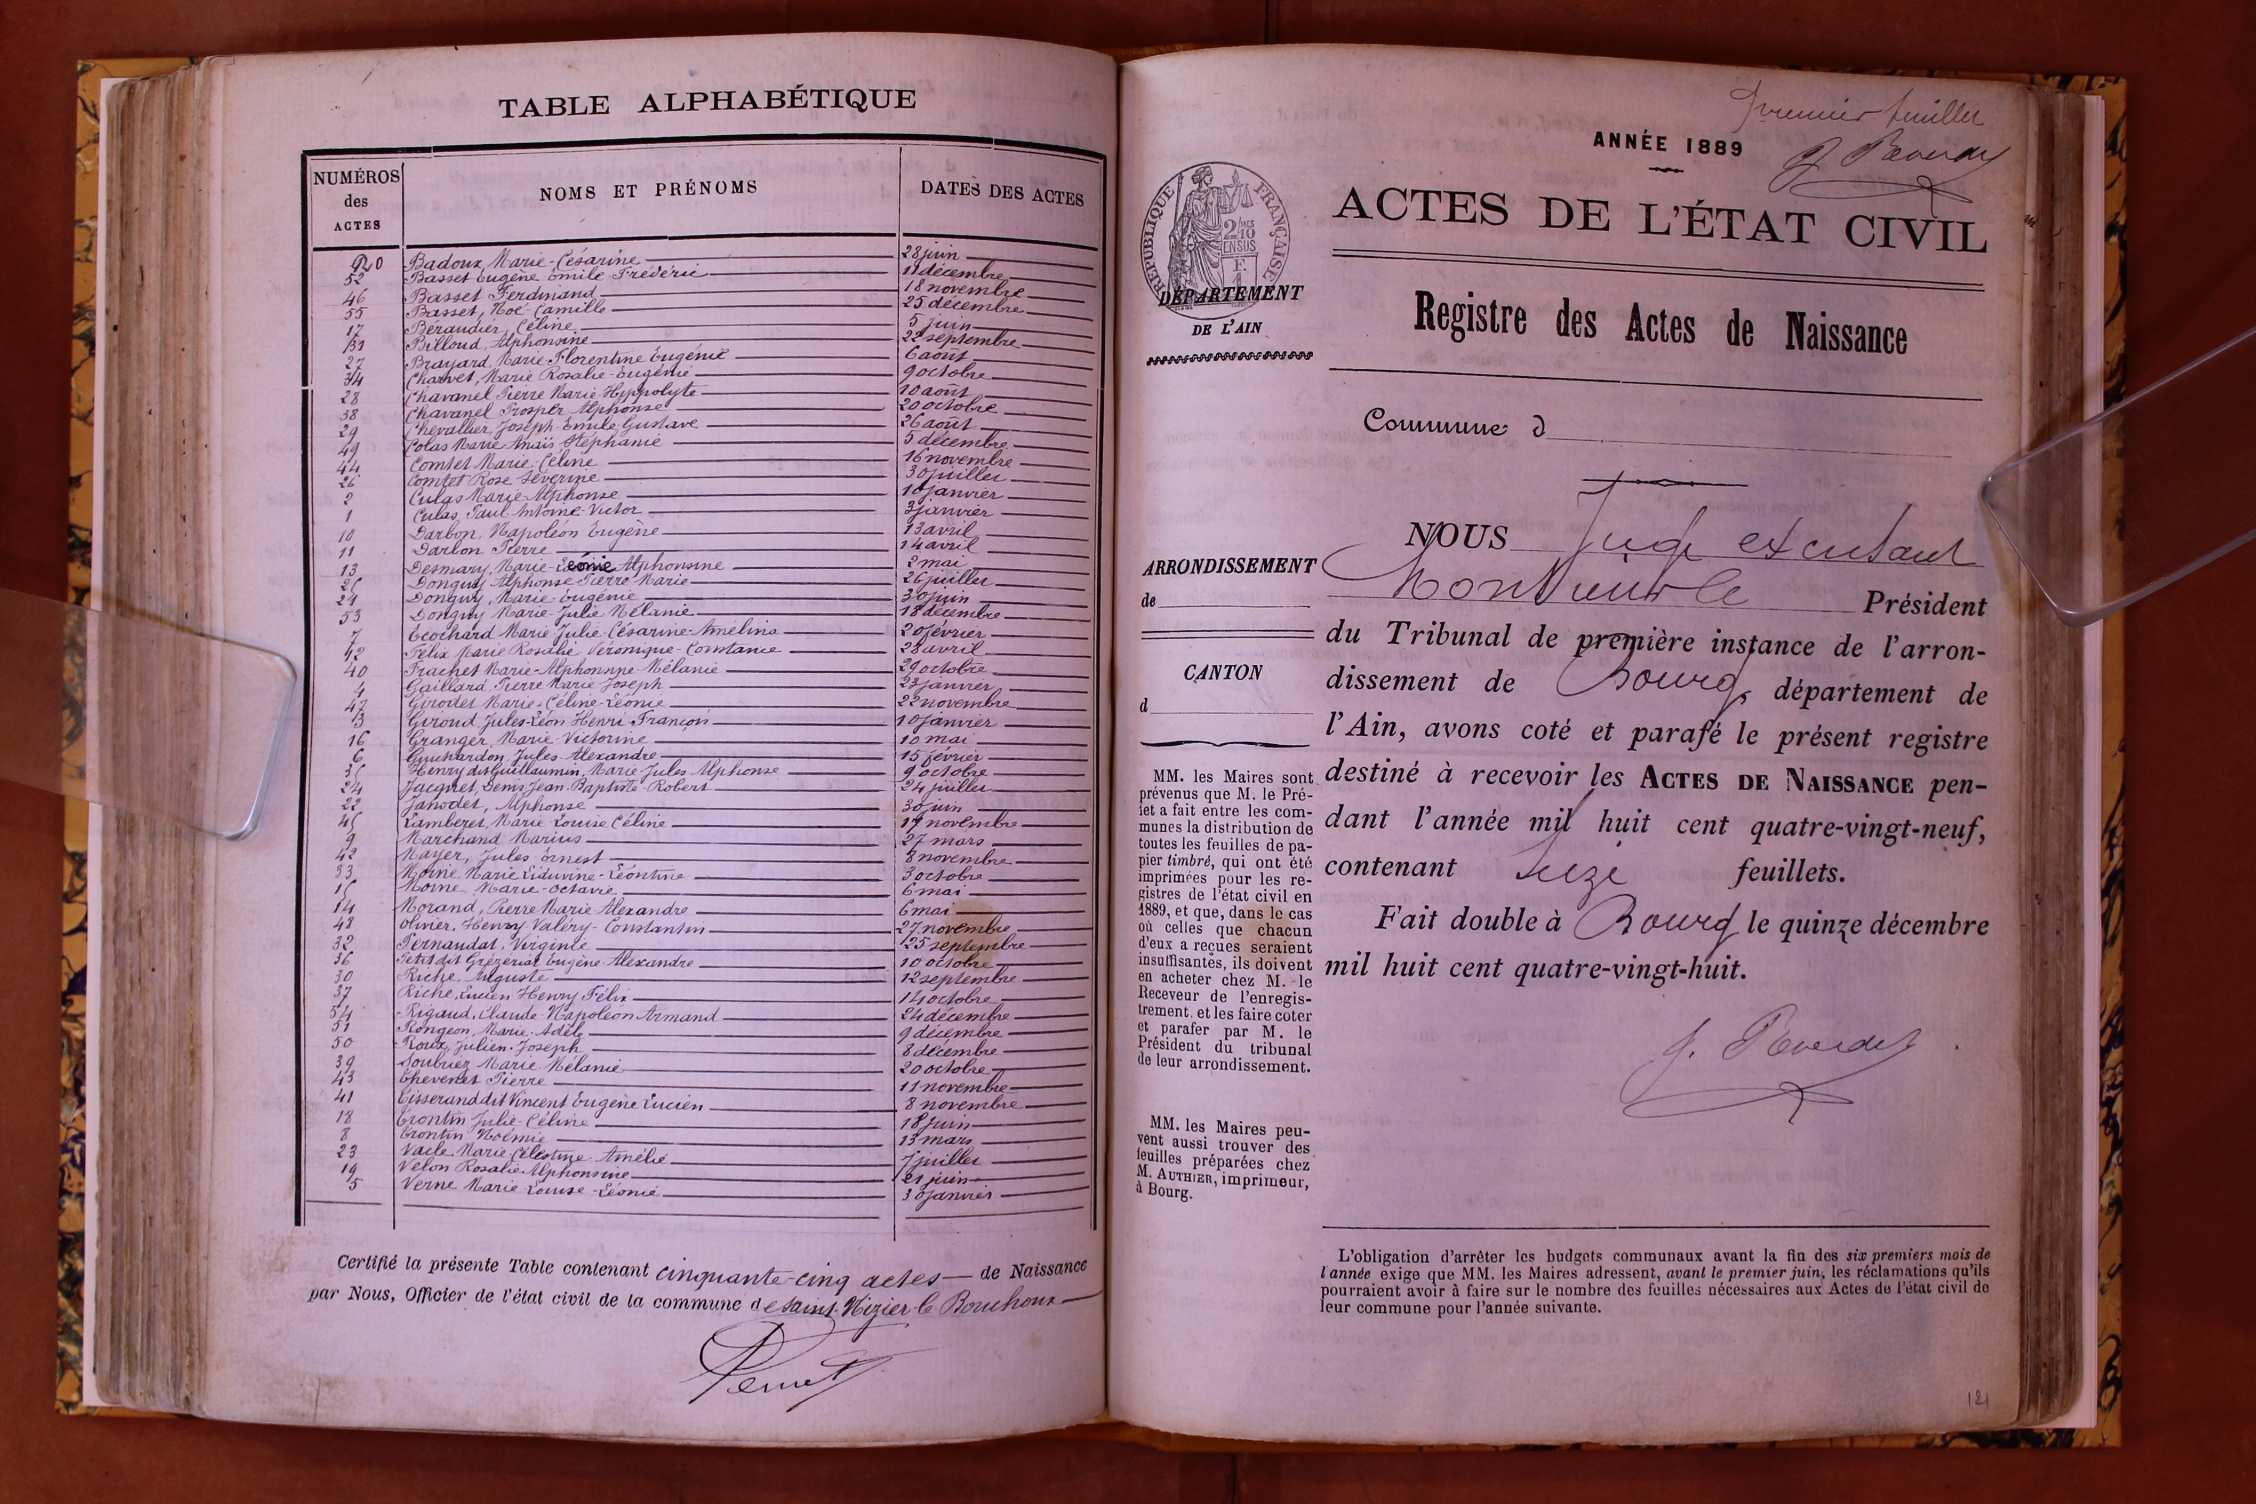 TABLE ALPHABÉTIQUE
NUMÉROS des ACTES NOMS ET PRÉNOMS DATES DES ACTES
20 Badoux Marie-Césarine 28 juin
52 Basset Eugène Emile Frédéric 11 décembre
46 Basset Ferdinand 18 novembre
55 Basset, Noé-Camille 25 décembre
17 Beraudier, Céline 5 juin
31 Billoud, Alphonsine 22 septembre
27 Brayard, Marie-Florentine Eugénie 6 août
34 Charvet, Marie Rosalie-Eugénie 9 octobre
28 Chavanel Pierre Marie-Hyppolyte 10 août
38 Chavanel Prosper Alphonse 20 octobre
29 Chevallier, Joseph-Emile-Gustave 26 août
49 Colas Marie-Anaïs Stéphanie 5 décembre
44 Comtet Marie Céline 16 novembre
26 Comtet Rose Séverine 30 juillet
2 Culas Marie-Alphonse 10 janvier
1 Culas, Paul-Antoine-Victor 3 janvier
10 Darbon, Napoléon Eugène 13 avril
11 Darbon Pierre 14 avril
13 Desmary, Marie-Léonie Alphonsine 2 mai
Donguy Alphonse-Pierre Marie 26 juillet
21 Donguy, Marie-Eugénie 30 juin
53 Donguy Marie-Julie Mélanie 18 décembre
7 Ecochard Marie Julie-Césarine-Amélina 20 février
12 Félix Marie Rosalie Véronique-Constance 28 avril
40 Frachet Marie-Alphonsine-Mélanie 29 octobre
4 Gaillard, Pierre Marie Joseph 23 janvier
47 Girodet Marie-Céline-Léonie 22 novembre
3 Giroud, Jules-Léon Henri-François 10 janvier
16 Granger, Marie-Victorine 10 mai
6 Guichardon, Jules Alexandre 15 février
35 Henry dit Guillaumin, Marie Jules Alphonse 9 octobre
24 Jacquet, Denis-Jean-Baptiste-Robert 24 juillet
22 Janodet, Alphonse 30 juin
45 Lamberet, Marie Louise Céline 17 novembre
9 Marchand Marius 27 mars
42 Mayer, Jules Ernest 8 novembre
33 Moine Marie Liduvine-Léontine 3 octobre
15 Moine Marie-Octavie 6 mai
14 Morand, Pierre Marie Alexandre 6 mai
48 Olivier, Henry Valéry-Constantin 27 novembre
32 Pernaudat, Virginie 25 septembre
36 Petit dit Grézeriat Eugène-Alexandre 10 octobre
30 Riche Auguste 12 septembre
37 Riche, Lucien Henry Félix 14 octobre
54 Rigaud, Claude-Napoléon Armand 24 décembre
51 Rongeon, Marie-Adèle 9 décembre
50 Roux, Julien-Joseph 8 décembre
39 Soubriez Marie Mélanie 20 octobre
43 Thevenet Pierre 11 novembre
41 Tisserand dit Vincent Eugène Lucien 8 novembre
18 Trontin Julie-Céline 18 juin
8 Trontin Noémie 13 mars
23 Vacle Marie Célestine-Amélie 7 juillet
19 Velon Rosalie-Alphonsine 21 juin
5 Verne Marie Louise-Léonie 30 janvier
Certifié la présente Table contenant cinquante-cinq actes de Naissance
par Nous, Officier de l'état civil de la commune de Saint-Nizier le Bouchoux
Premier feuillet
ANNÉE 1889
ACTES DE L'ÉTAT CIVIL
RÉPUBLIQUE FRANÇAISE
DÉPARTEMENT
DE L'AIN
Registre des Actes de Naissance
Commune d
ARRONDISSEMENT
de
CANTON
d
MM. les Maires sont
prévenus que M. le Pré-
fet a fait entre les com-
munes la distribution de
toutes les feuilles de pa-
pier timbré, qui ont été
imprimées pour les re-
gistres de l'état civil en
1889, et que, dans le cas
où celles que chacun
d'eux a reçues seraient
insuffisantes, ils doivent
en acheter chez M. le
Receveur de l'enregis-
trement, et les faire coter
et parafer par M. le
Président du tribunal
de leur arrondissement.
MM. les Maires peu-
vent aussi trouver des
feuilles préparées chez
M. AUTHIER, imprimeur,
à Bourg.
NOUS Juge excusant
Monsieur le Président
du Tribunal de première instance de l'arron-
dissement de Bourg, département de
l'Ain, avons coté et parafé le présent registre
destiné à recevoir les ACTES DE NAISSANCE pen-
dant l'année mil huit cent quatre-vingt-neuf,
contenant Seize feuillets.
Fait double à Bourg le quinze décembre
mil huit cent quatre-vingt-huit.
L'obligation d'arrêter les budgets communaux avant la fin des six premiers mois de
l'année exige que MM. les Maires adressent, avant le premier juin, les réclamations qu'ils
pourraient avoir à faire sur le nombre des feuilles nécessaires aux Actes de l'état civil de
leur commune pour l'année suivante.
121